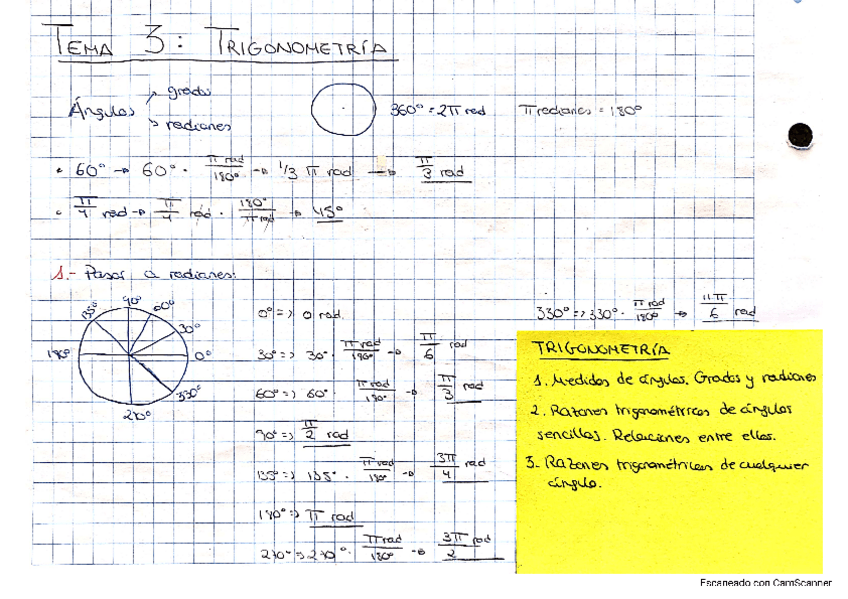 TEMA 3: TRIGONOMETRÍA
Ángulos → grados
→ radianes
360° = 2π rad
π radianes = 180°
• 60° → 60° · π rad/180° → 1/3 π rad → π/3 rad
• π/4 rad → π/4 rad · 180°/π rad → 45°
1.- Pasar a radianes:
90°
60°
135°
30°
180°
0°
330°
270°
0° => 0 rad.
30° => 30° · π rad/180° → π/6 rad
60° => 60° · π rad/180° → π/3 rad
90° => π/2 rad
135° => 135° · π rad/180° → 3π/4 rad
180° => π rad
270° => 270° · π rad/180° → 3π/2 rad
330° => 330° · π rad/180° → 11π/6 rad
TRIGONOMETRÍA
1. Medidas de ángulos. Grados y radianes
2. Razones trigonométricas de ángulos
sencillos. Relaciones entre ellas.
3. Razones trigonométricas de cualquier
ángulo.
Escaneado con CamScanner